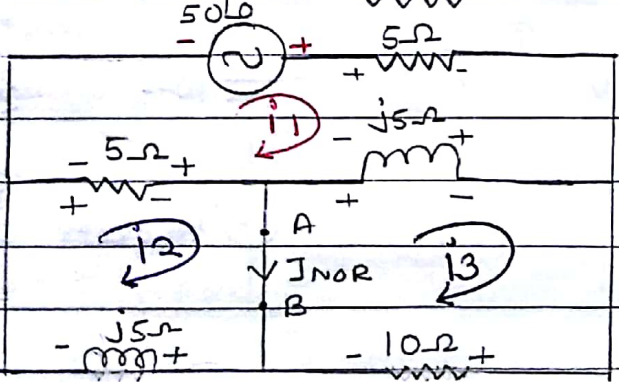 50∠0
- + 5Ω
+ -
i1
- j5Ω +
- 5Ω +
+ - + -
A
i2 INOR i3
B
j5Ω 10Ω
- + - +